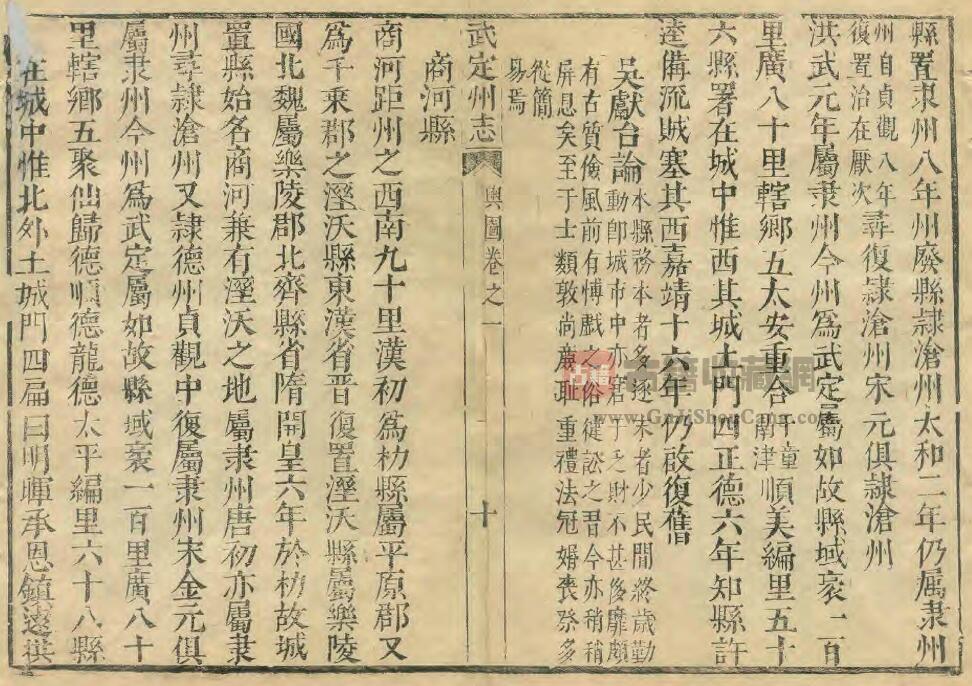 縣置隶州八年州廢縣隷滄州太和二年仍属隶州
州自貞觀八年
復置治在厭次
尋復隷滄州宋元俱隷滄州
洪武元年屬隶州今州為武定屬如故縣域袤一百
里廣八十里轄鄉五太安重合于童南津順美編里五十
六縣署在城中惟西其城土門四正德六年知縣許
逵備流賊塞其西嘉靖十六年仍啟復舊
吳獻台論
本縣務本者多逐末者少民間終歲勤
動卽城市中亦窘于乏財不甚侈靡頗
有古質儉風前有愽戲之俗健訟之習今亦稍稍
屏息矣至于士類敦尚廉耻重禮法冠婚喪祭多
從簡
易焉
武定州志 輿圖卷之一 十
商河縣
商河距州之西南九十里漢初為朸縣屬平原郡又
為千乘郡之溼沃縣東漢省晋復置溼沃縣屬樂陵
國北魏屬樂陵郡北齊縣省隋開皇六年於朸故城
置縣始名商河兼有溼沃之地屬隶州唐初亦屬隶
州尋隷滄州又隷德州貞觀中復屬隶州宋金元俱
屬隶州今州為武定屬如故縣域袤一百里廣八十
里轄鄉五聚仙歸德順德龍德太平編里六十八縣
在城中惟北外土城門四扁曰明暉承恩鎮遠拱
古籍
古籍收藏網
www.GuJiShouCang.com